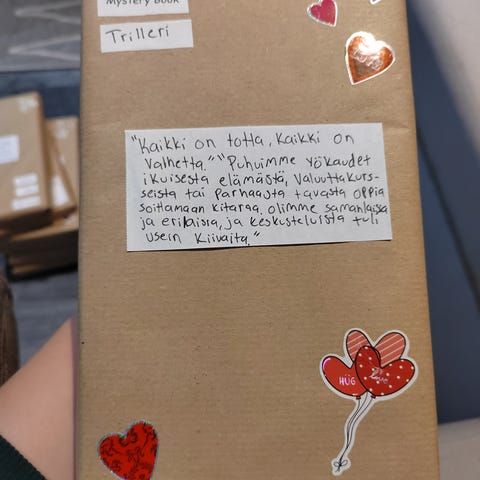 Mystery Book
Trilleri
"Kaikki on totta, kaikki on
valhetta." "Puhuimme yökaudet
ikuisesta elämästä, valuuttakurs-
seista tai parhaasta tavasta oppia
soittamaan kitaraa. Olimme samanlaisia
ja erilaisia, ja keskusteluista tuli
usein kiivaita."
HÜG